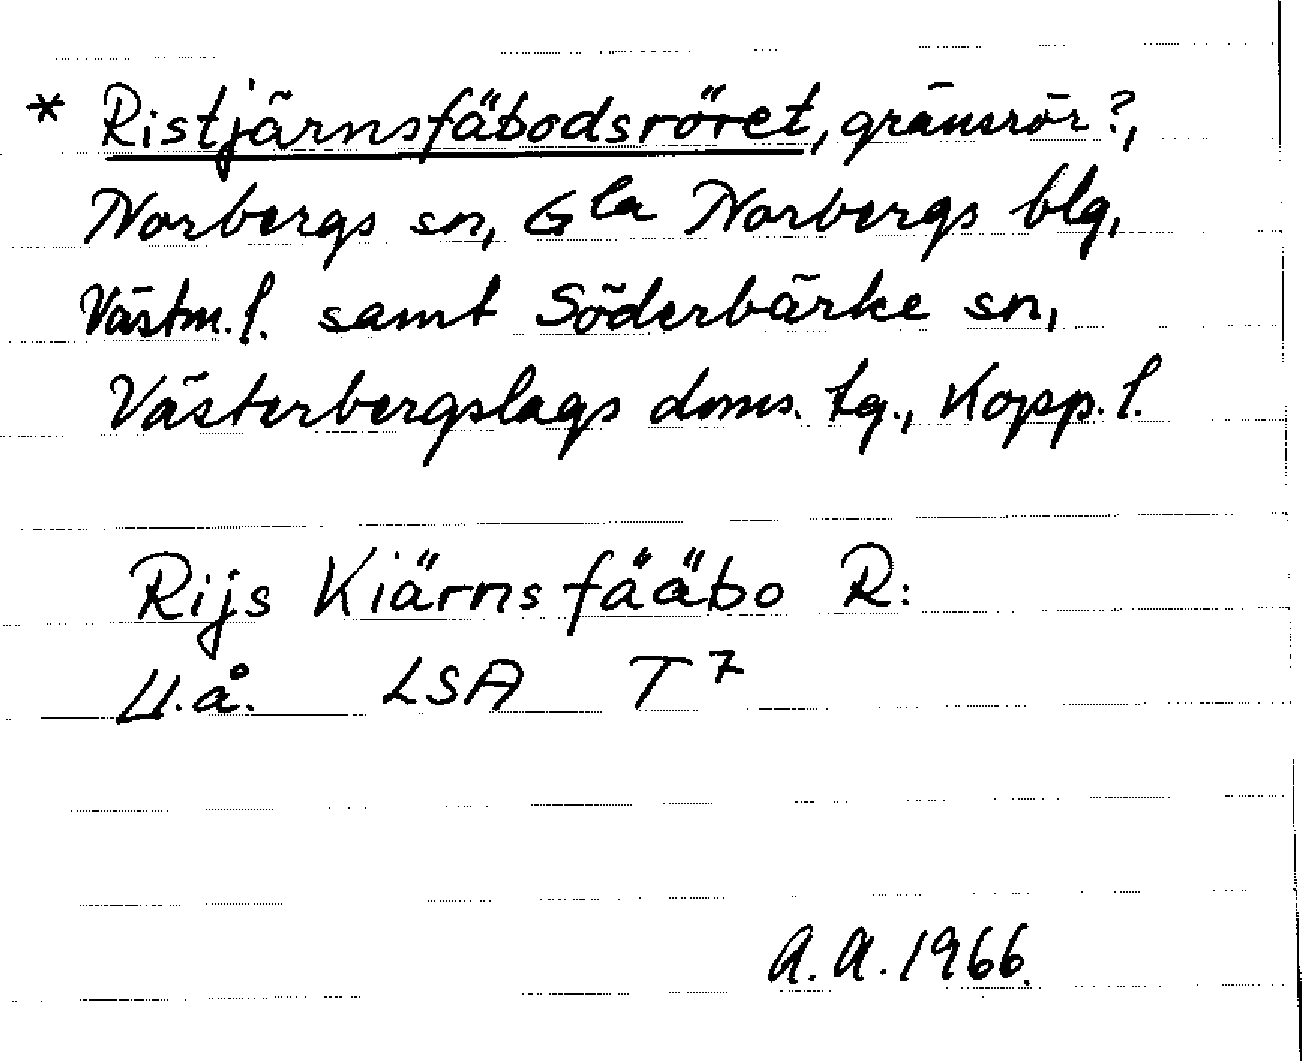 * Ristjärnsfäbodsröret, gränsrör?,
Norbergs sn, Gla Norbergs blg,
Västm. l. samt Söderbärke sn,
Västerbergslags doms. tg., Kopp. l.
Rijs Kiärns fääbo R:
U.å. LSA T7
A.A. 1966.